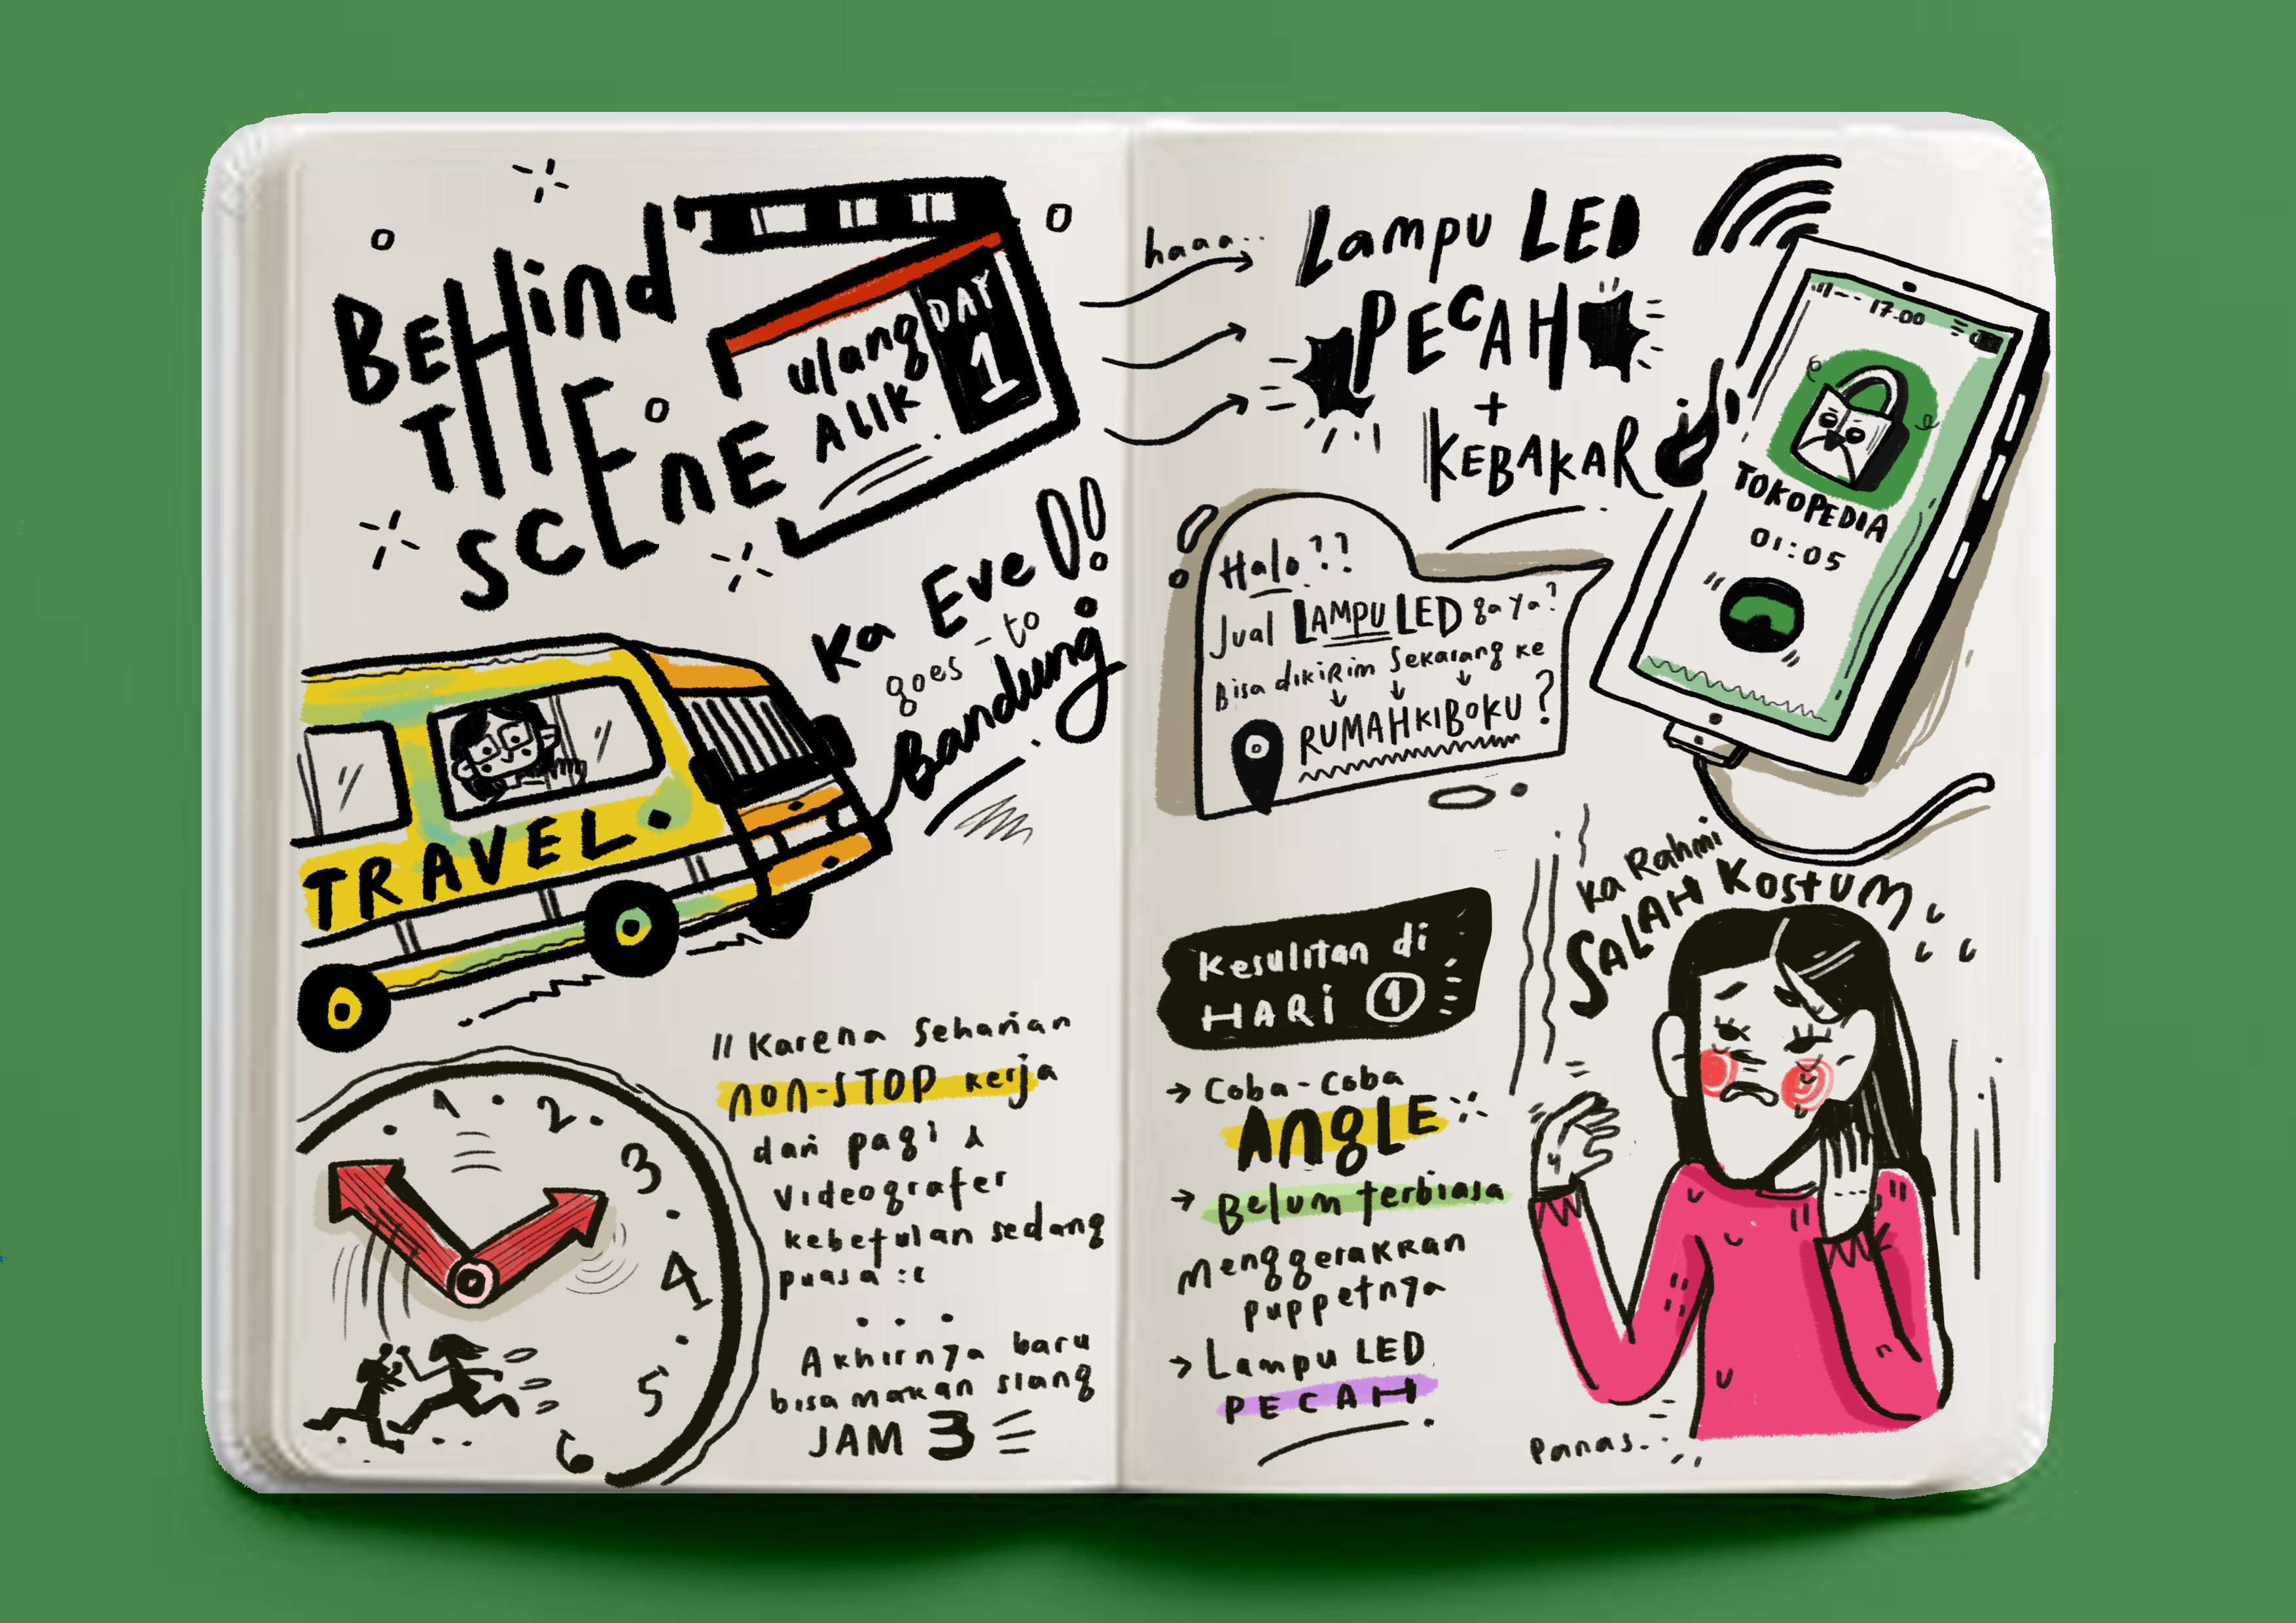 BEHind
THE
SCEnE
ulang
ALIK
DAY
1
Ka Eve
goes-to
Bandung
TRAVEL.
1 . 2 .
3
4
5
6
" Karena Seharian
non-STOP kerja
dari pagi &
videografer
kebetulan sedang
puasa :(
. . .
Akhirnya baru
bisa makan siang
JAM 3
haaa..
Lampu LED
PECAH
+
KEBAKAR
17.00
TOKOPEDIA
01:05
Halo??
Jual LAMPU LED ga ya?
Bisa dikirim sekarang ke
RUMAHKIBOKU?
Kesulitan di
HARi 1
→ Coba-Coba
AngLE
→ Belum terbiasa
menggerakkan
puppetnya
→ Lampu LED
PECAH
Ka Rahmi
SALAH KostuM
Panas..